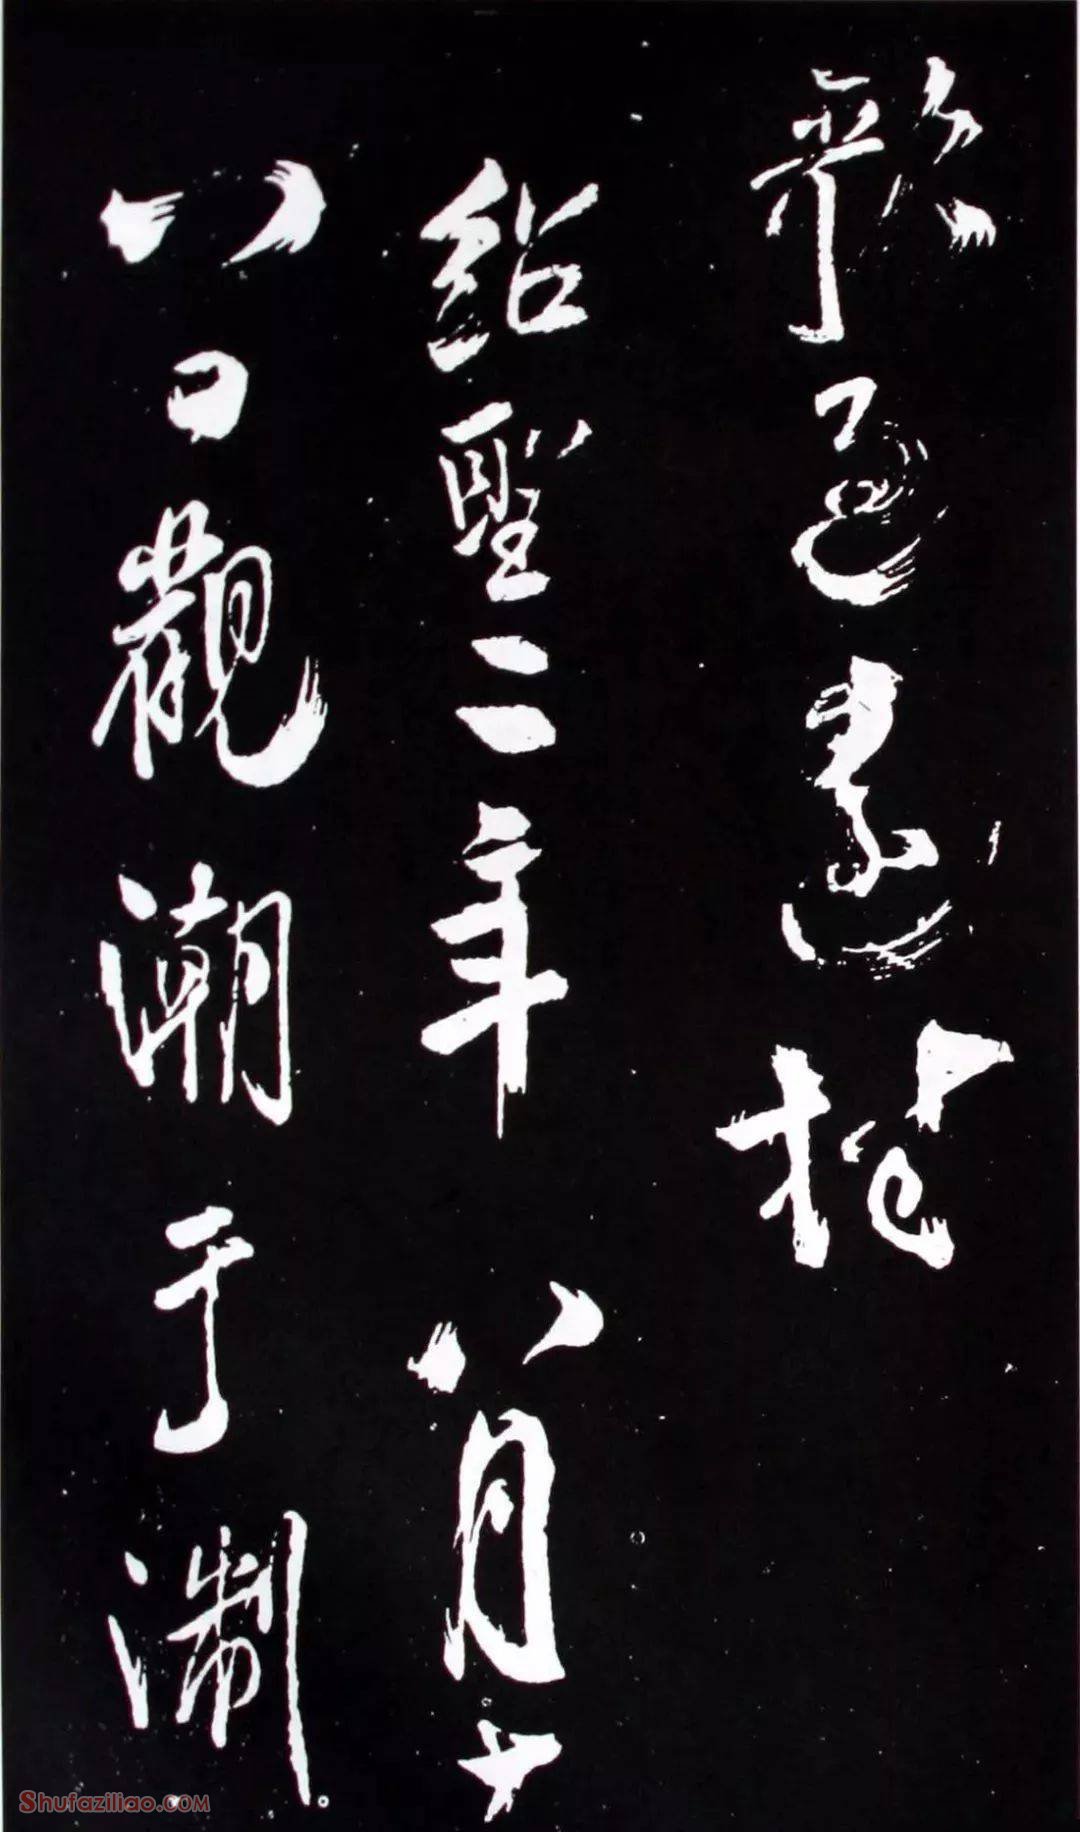 歌過遠
紹聖二年八月十
八日觀潮于淛
Shufaziliao.COM